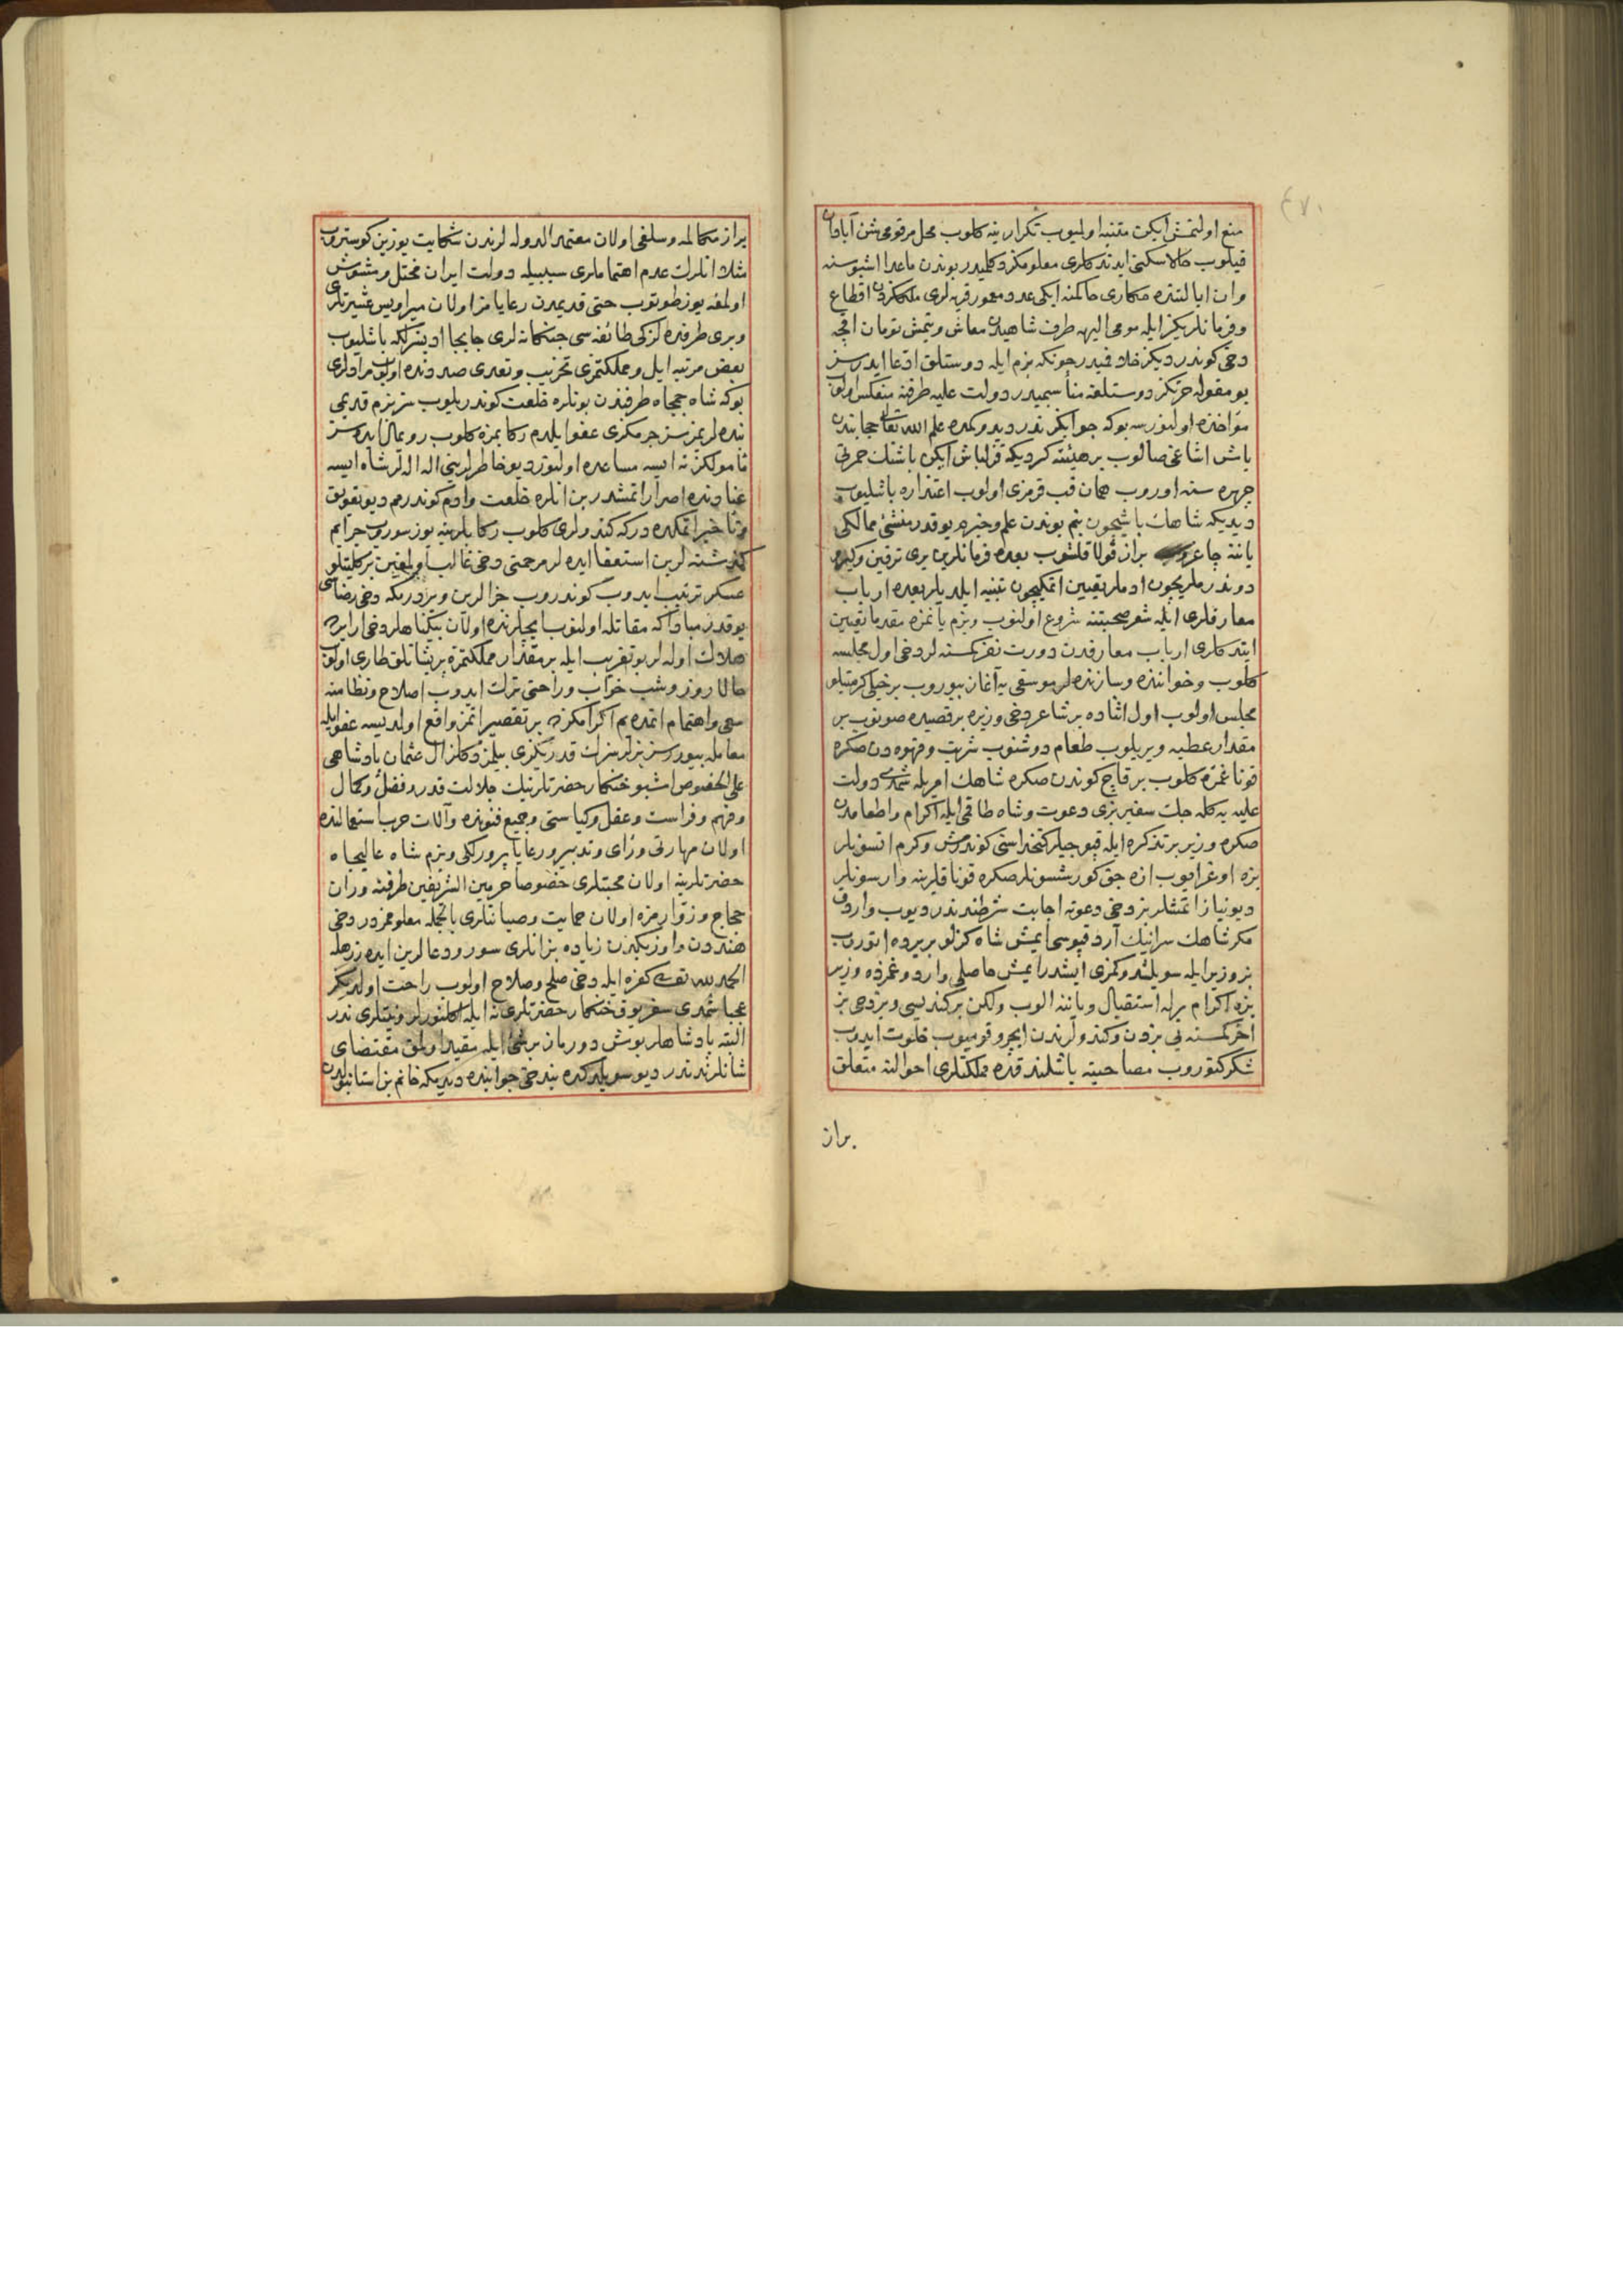 ٤٧٠
منع اولنمش ایکن متنبه اولمیوب تکرار ینه کلوب محل مرقومی شن آبادان
قیلوب حالا سکنی ایدندکلری معلومکز دکلمیدر بوندن ماعدا اشبو سنه
وان ایالتنده حکاری حاکمنه ایکی عدد معمور قریه لری ملککزدن اقطاع
وفرمانلریکز ایله مومی الیهه طرف شاهیدن معاش ویتمش تومان اقچه
دخی کوندردیکز خلافمیدر چونکه بزم ایله دوستلق ادعا ایدرسز
بو مقوله حرکتکز دوستلغه مناسبمیدر دولت علیه طرفنه منعکس اولوب
مؤاخذه اولنورسه بوکه جوابکز ندر دیدوکمده علم الله تعالی حجابندن
باش اشاغی صالوب بر هیئته کردیکه قزلباش ایکن باشنك حمرتی
چهره سنه اوروب همان قپ قرمزی اولوب اعتذاره باشلیوب
دیدیکه شاهك باشیچون بنم بوندن علم وخبرم یوقدر منشئ ممالکی
یاننه چاغروب براز قولاقلشوب بعده فرمانلرین یری ترقین وکیرو
دوندرملریچون ادملر تعیین اتمکیچون تنبیه ایلدیلر بعده ارباب
معارفلری ایله شعر صحبتنه شروع اولنوب وبزم یانمزه مقدما تعیین
ایتدکلری ارباب معارفدن دورت نفر کمسنه لر دخی اول مجلسه
کلوب وخواننده وسازنده لر موسقی یه آغاز بیوروب بر خیلی کرمیتلو
مجلس اولوب اول اثناده بر شاعر دخی وزیره بر قصیده صونوب بر
مقدار عطیه ویریلوب طعام دوشنوب شربت وقهوه دن صکره
قوناغمزه کلوب بر قاچ کوندن صکره شاهك امریله شمدی دولت
علیه یه کله جك سفیر بزی دعوت وشاه طاقی ایله اکرام واطعامدن
صکره وزیر بر تذکره ایله قپوجیلر کتخداسنی کوندرمش وکرم اتسونلر
بزه اوغرایوب ازه جق کورشسونلر صکره قوناقلرینه وارسونلر
دیو نیاز اتمشلر بز دخی دعوته اجابت شرطندندر دیوب واردق
مکر شاهك سراینك آرد قپوسی ایمش شاه کزلو بر یرده اتوروب
بز وزیر ایله سویلشدوکمزی ایشدر ایمش حاصلی واردوغمزده وزیر
بزه اکرام برله استقبال ویاننه الوب ولکن بر کندیسی وبر دخی بز
اخر کمسنه یی بزدن وکندولرندن ایچرو قومیوب خلوت ایدوب
شکر کتوروب مصاحبته باشلندقده مملکتلری احوالنه متعلق
براز
براز مکالمه وسلفی اولان معتمد الدوله لرندن شکایت یوزین کوستروب
مثلا انلرك عدم اهتماملری سببیله دولت ایران مختل ومشوش
اولمغه یوز طوتوب حتی قدیمدن رعایامز اولان میراویس عشیرتلری
وبری طرفده لزکی طائفه سی جنکانه لری جابجا ادبسزلکه باشلیوب
بعض مرتبه ایل ومملکتمزی تخریب وتعدی صددنده اولوب مرادلری
بوکه شاه جمجاه طرفندن بونلره خلعت کوندریلوب سز بزم قدیمی
بنده لریمزسز جرمکزی عفو ایلدم رکابمزه کلوب رویمال ایدرسز
مأمولکز نه ایسه مساعده اولنور دیو خاطرلرینی اله الدلر شاه ایسه
عنادنده اصرار اتمشدر بن انلره خلعت وادم کوندرمم دیو تعویق
وتأخیر اتمکده در که کندولری کلوب رکابلرینه یوز سوروب جرایم
کذشته لرین استعفا ایده لر مرحمتی دخی غالب اولمغین بر کلیتلو
عسکر ترتیب ایدوب کوندروب جزالرین ویردرمکه دخی رضای
یوقدر مباداکه مقاتله اولنوب ایچلرنده اولان بیکناهلر دخی اراده
هلاك اوله لر بو تقریب ایله بر مقدار مملکتمزه پریشانلق طاری اولوب
حالا روز وشب خواب وراحتی ترك ایدوب اصلاح ونظامنه
سعی واهتمام اتمده یم اکرامکزده بر تقصیراتمز واقع اولدیسه عفو ایله
معامله بیوررسز بزلر سزك قدریکزی بیلمزدکلز ال عثمان پادشاهی
علی الخصوص اشبو خنکار حضرتلرینك جلالت قدر وفضل وکمال
وفهم وفراست وعقل وکیاستی وجمیع فنونده وآلات حرب استعمالنده
اولان مهارتی ورای وتدبیر ورعایا پرورلکی وبزم شاه عالیجاه
حضرتلرینه اولان محبتلری خصوصا حرمین الشریفین طرفنه وران
حجاج وزوارمزه اولان حمایت وصیانتلری بالجمله معلوممزدر دخی
هنددن واوزبکدن زیاده بز انلری سور ودعالرین ایده رز هله
الحمد لله نمسه کفره ایله دخی صلح وصلاح اولوب راحت اولدیکز
عجبا شمدی سفر یوق خنکار حضرتلری نه ایله اکلنورلر ونیتلری ندر
البته پادشاهلر بوش دورمان بر شئ ایله مقید اولمق مقتضای
شانلرندندر دیو سویلدکده بنده خی جوابنده دیدیمکه خانم بز استانبولدن